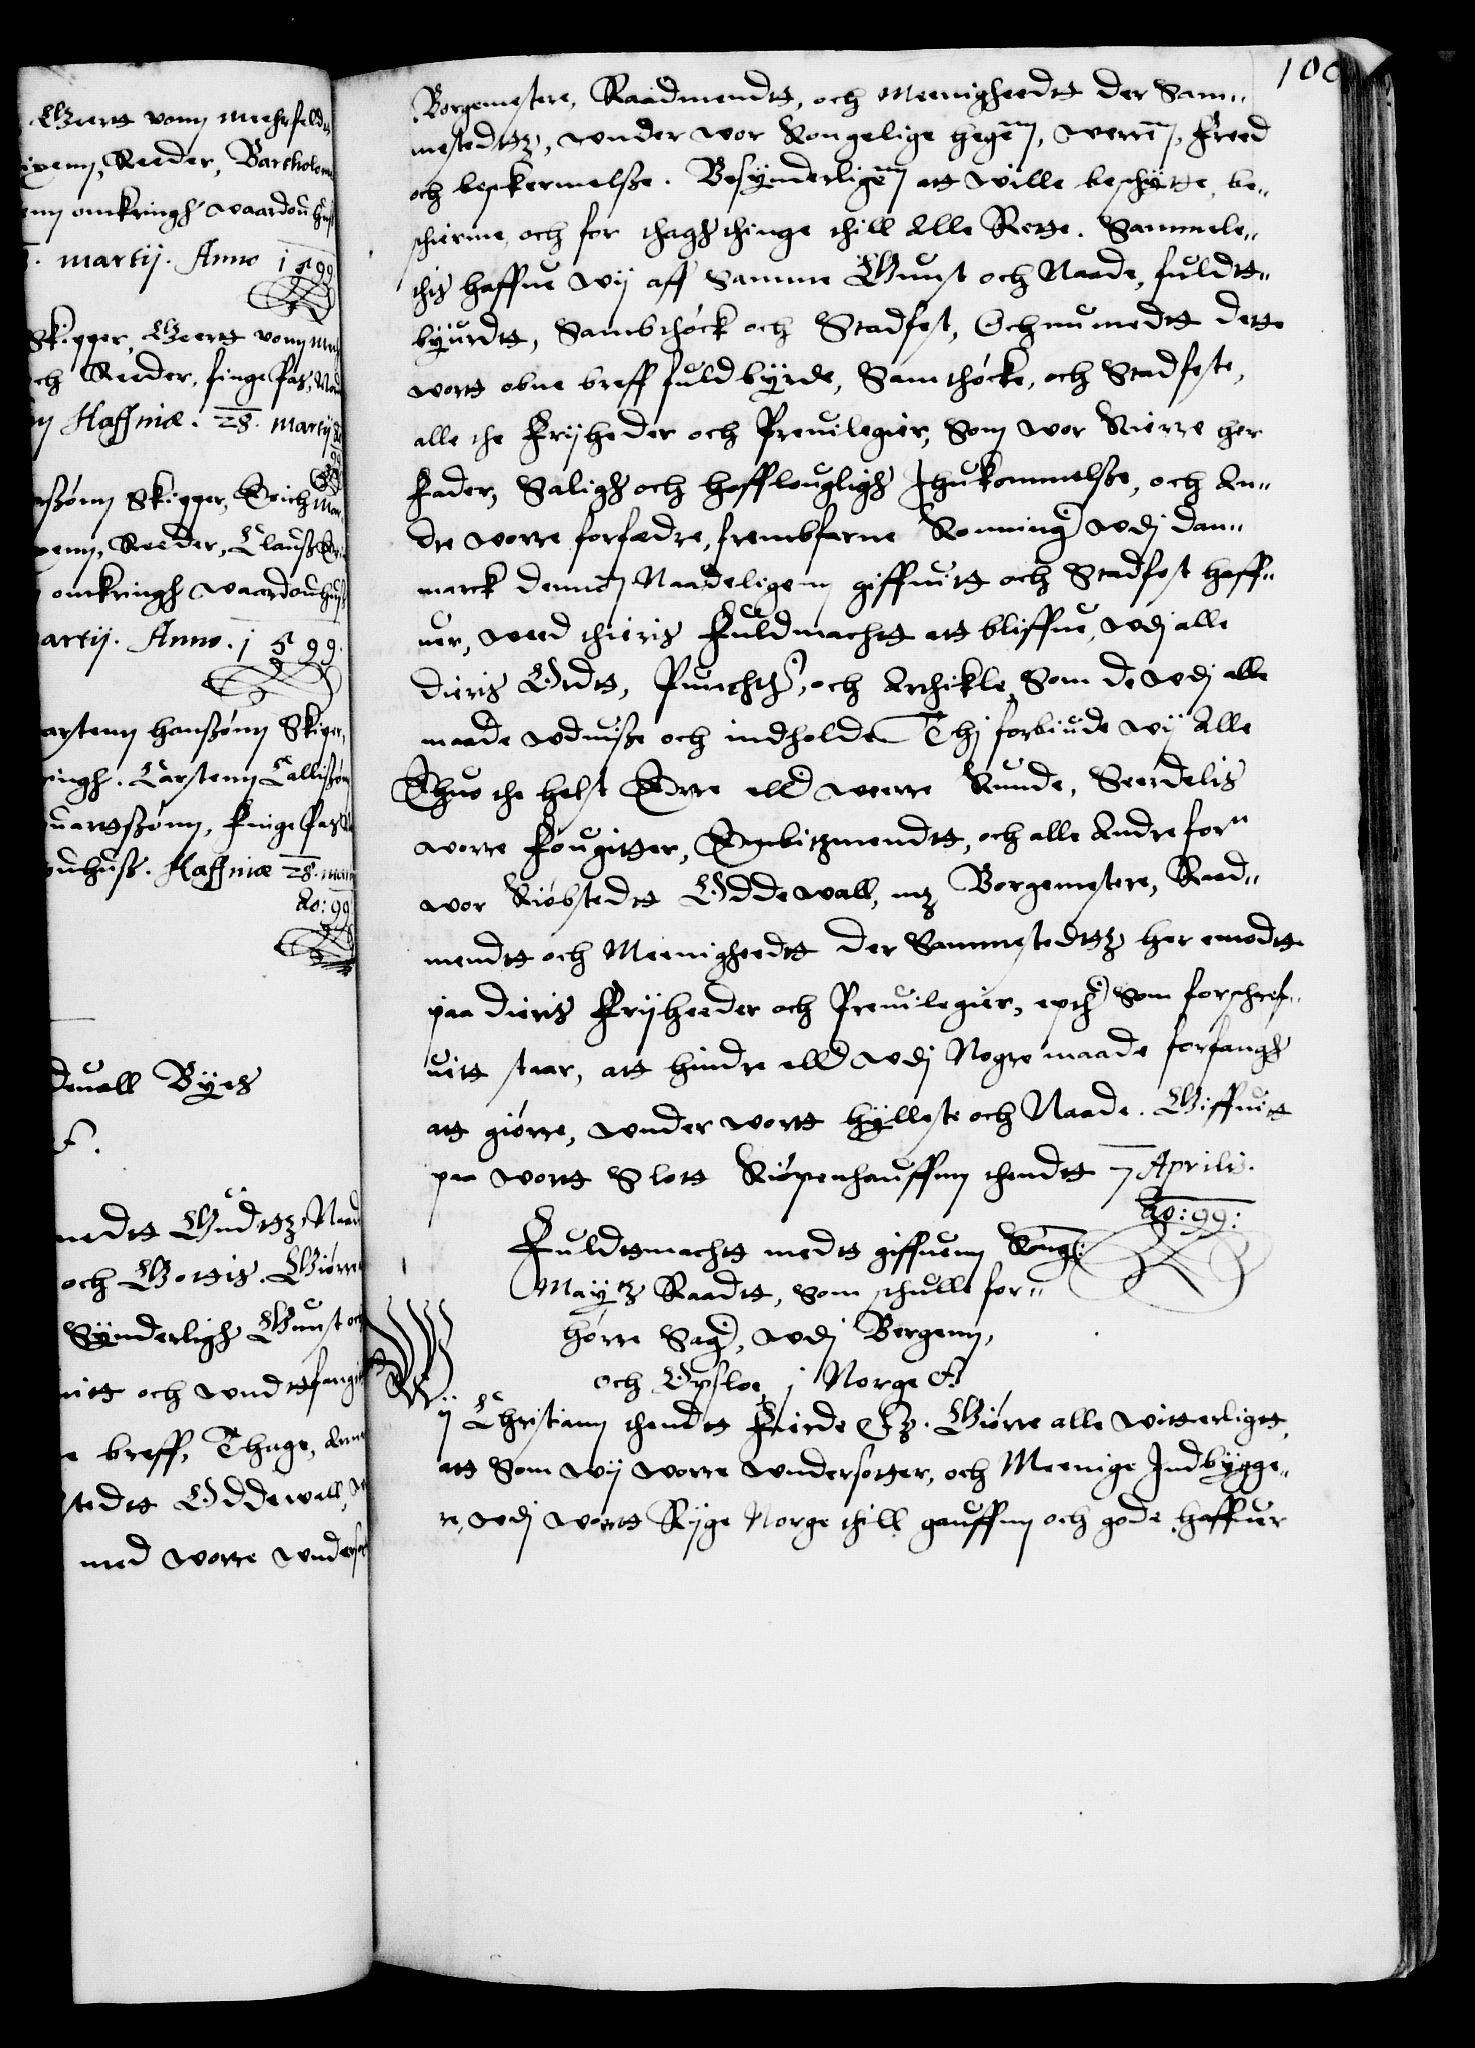 Geertt vonn Meehrfeldtt
ixenn, Reeder, Bartholome
enn omkringh Waardouhuus
. martij. Anno 1599
Skipper, Geertt vonn Me
ch Reeder, finge Pas, Na
y Haffniæ. 28. Martij
99
rssønn Skipper, Erich Ma
penn, Reeder, Clauss
omkringh Waardouhuss
artij. Anno. 1599.
arstenn Hanssønn Skiper,
ringh. Carstenn Callissøn
uartssønn, Finge Pas
ouhuss. Haffniæ 28. mar
Ao: 99
deuall Byes
f.
medtt Gudttz Naad
och Gottis. Giørre
Synderligh Gunst och
uitt och undttfangit
e breff, Thage, Anna
stedtt Oddewall,
med worre unders
100
Borgemestere, Raadmendtt, och Meenigheedtt der Sam¬
mestedttz, wnder wor Kongelige hegenn, werrenn, Freed
och beskermelsse. Besynderligenn att wille beschytte, be¬
schierme, och for thagh thinge thill Alle Rette. Sammele¬
this haffue wij aff Samme Gunst och Naade, fuldtt¬
byurdtt, Sambthøck och Stadfest, Och nu medtt dette
wortt obne breff fuldbyrde, Samthøcke, och Stadfeste,
alle the Frijheder och Preuilegier, Som wor Kierre her
Fader, Saligh och høfflougligh Ihukommelsse, och An¬
dre worre forfædre, frembfarne Konninger wdj Dan¬
marck dennom Naadeligenn giffuitt och Stadfest haff¬
uer, weed thieris Fuldmachtt att bliffue, wdj alle
dieris Ordtt, Puncther, och Arthikle, Som de wdj alle
maade wduisse och indholde. Thj forbiude wij Alle
Ehuo the helst Erre eller werre Kunde, Seerdelis
worre Fougitter, Embitzmendtt, och alle Andre forne
wor Kiøbstedtt Oddewall, mz Borgemestere, Raad¬
mendtt och Meenigheedtt der Sammestedttz her emodtt
paa dieris Frijheeder och Preuilegier, epther Som forschref¬
uitt staar, att hindre eller wdj Nogre maade forfangh
att giørre, wnder wortt hylleste och Naade. Giffuitt
paa wortt Slott Kiøpenhauffnn thendtt 7 Aprilis.
Ao: 99:
Fuldttmachtt medtt giffuenn Kongl:
Maytz Raadtt, Som schulle for¬
hørre Sager, wdj Bergenn,
och Opsloe j Norge &.
Wij Christiann thendtt Fierde Etz. Giørre alle witterligtt,
att Som wij worre wndersotter, och Meenige Indbygge¬
re, wdj wortt Ryge Norge thill gauffnn och gode haffuer